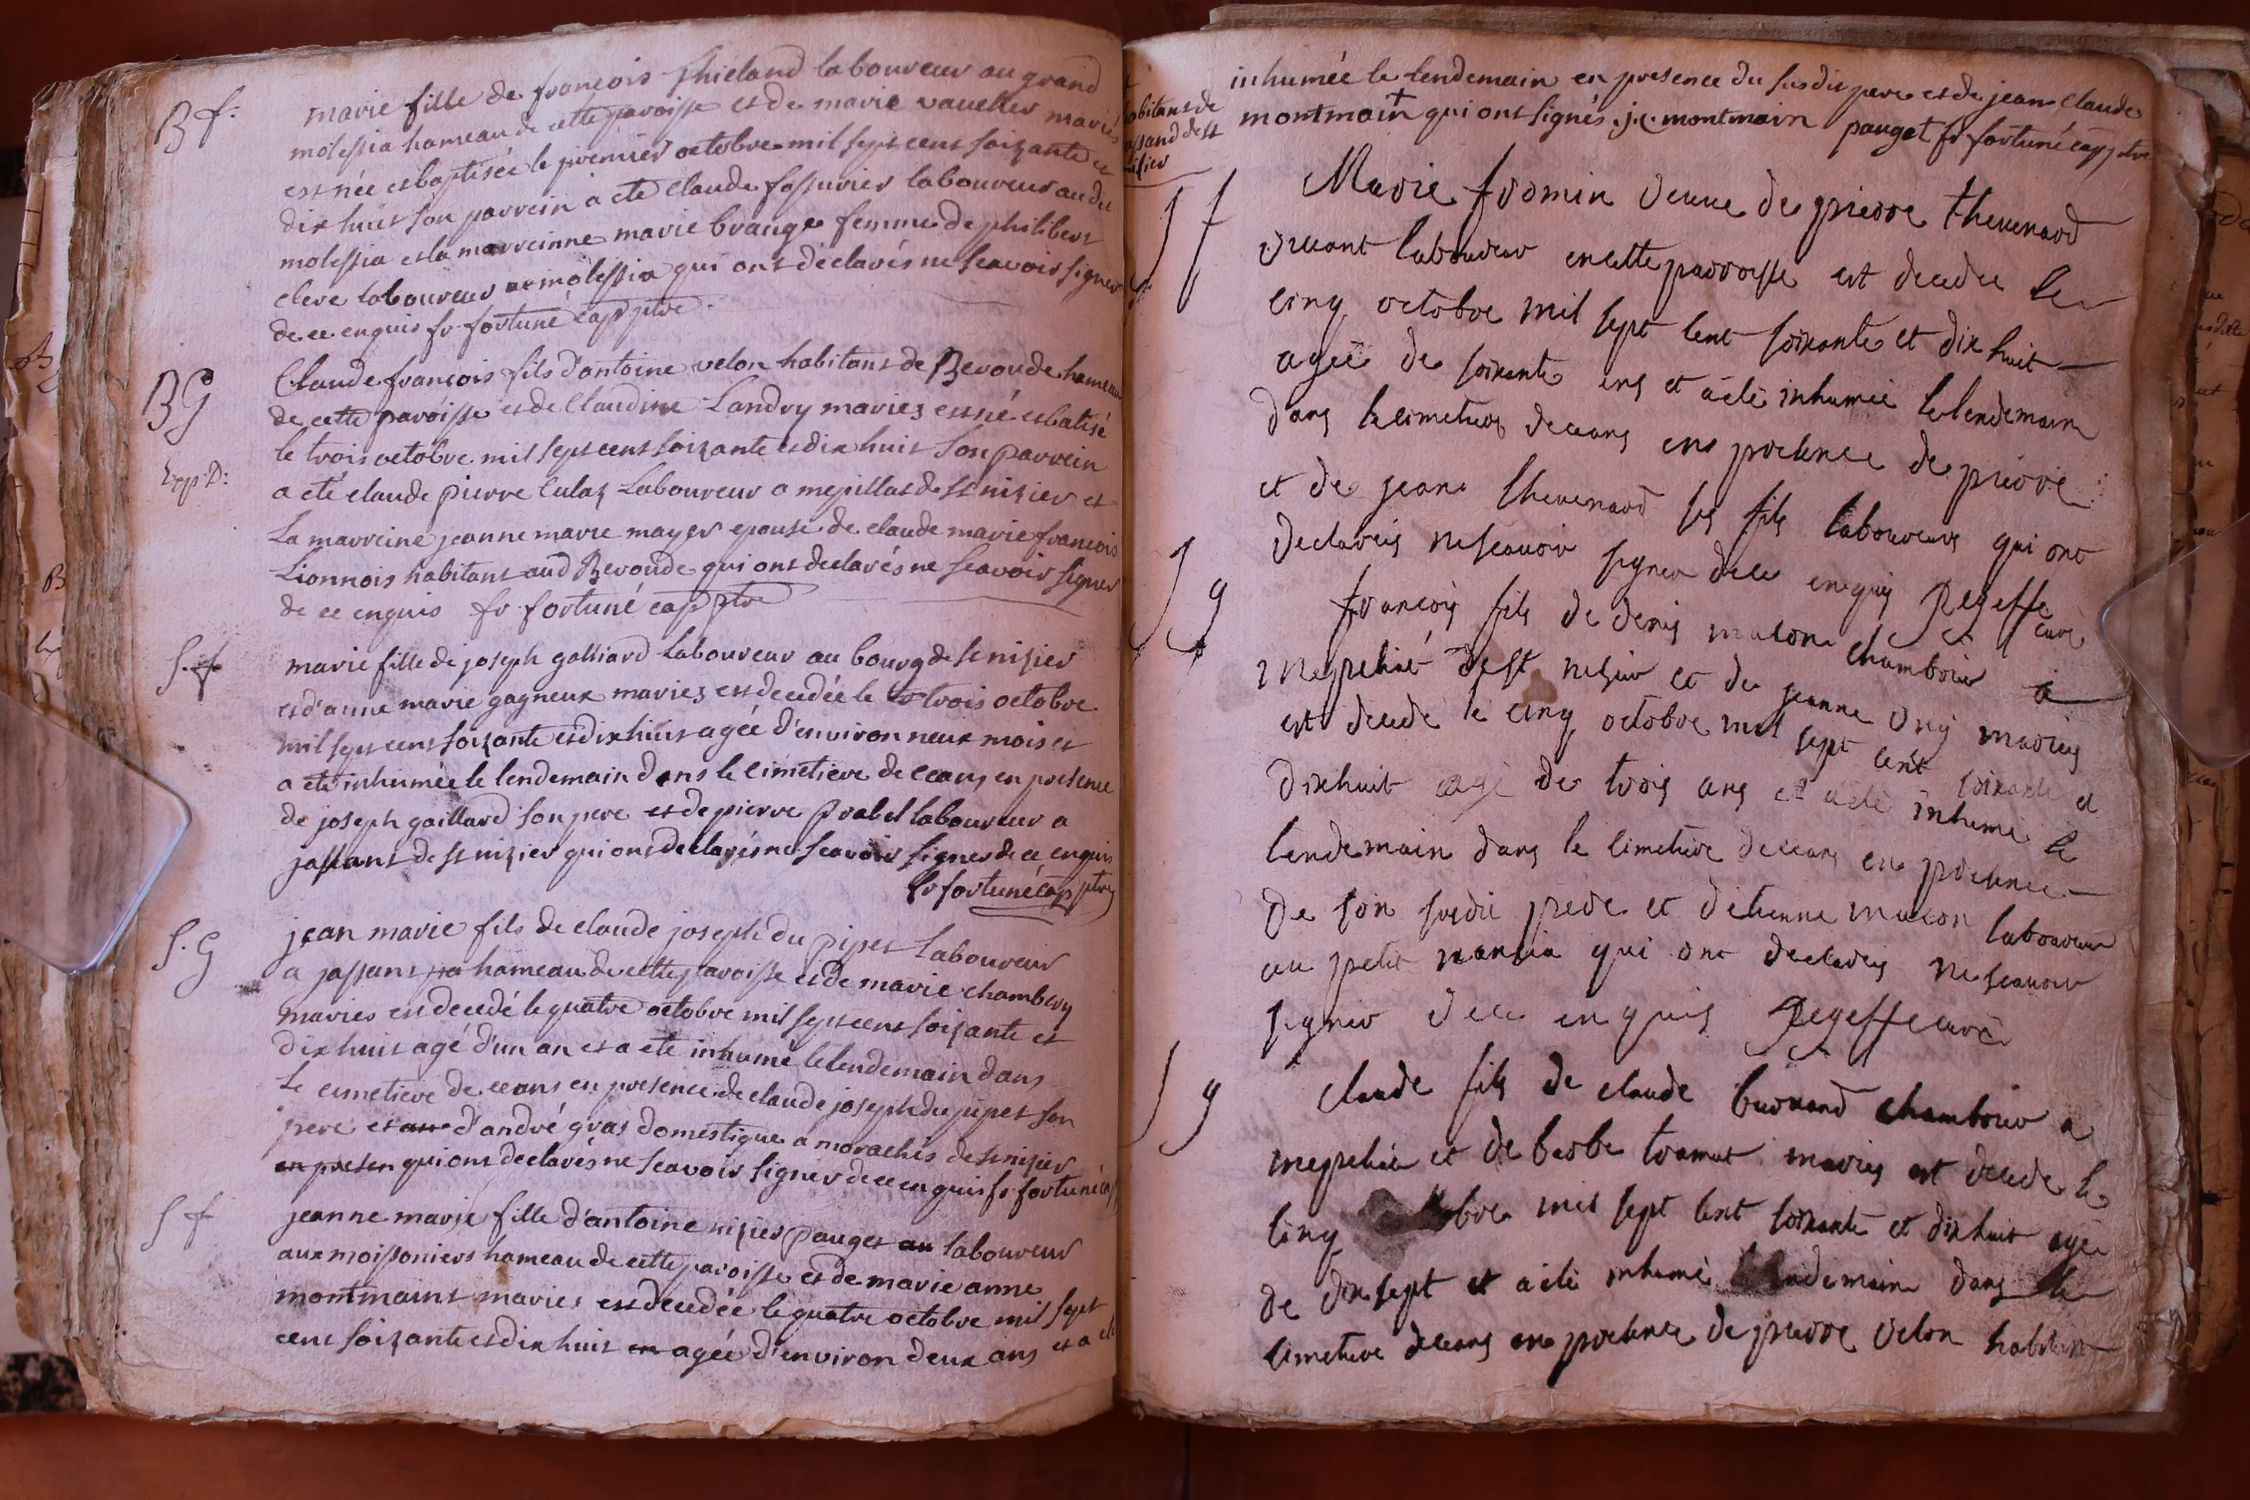 B f:
marie fille de francois thieland laboureur au grand
molessia hameau de cette paroisse et de marie vauelles mariés
est née et baptisée le premier octobre mil sept cent soixante et
dix huit son parrein a eté claude fassurier laboureur au du
molessia et la marreinne marie brange femme de philibert
clere laboureur au molessia qui ont déclarés ne scavoir signer
de ce enquis fr fortuné cap ptre
B G
Exp. D:
Claude francois fils d'antoine velon habitant de Bevoude hameau
de cette paroisse et de claudine Landry mariez est né et batisé
le trois octobre mil sept cent soixante et dix huit son parrein
a eté claude pierre culas Laboureur a mepillat de st nizier et
La marreine jeanne marie mayer epouse de claude marie francois
Lionnois habitant aud Bevoude qui ont declarés ne scavoir signer
de ce enquis fr fortuné cap ptre
S. f
marie fille de joseph galliard laboureur au bourg de st nizier
et d'anne marie gagneux mariez est decedée le trois octobre
mil sept cent soixante et dix huit agée d'environ neux mois et
a eté inhumée le lendemain dans le cimetiere de ceans en presence
de joseph gaillard son pere et de pierre prabel laboureur a
jassans de st nizier qui ont declarés ne scavoir signer de ce enquis
fr fortuné cap ptre
S. G
jean marie fils de claude joseph du pipet laboureur
a jassans hameau de cette paroisse et de marie chambery
maries est decedé le quatre octobre mil sept cent soixante et
dix huit agé d'un an et a eté inhumé le lendemain dans
le cimetiere de ceans en presence de claude joseph du pipet son
pere et d'andré gras domestique a morachis de st nizier
en presen qui ont declarés ne scavoir signer de ce enquis fr fortuné cap
S f
jeanne marie fille d'antoine nizier pauget au laboureur
aux moissoniers hameau de cette paroisse et de marie anne
montmains maries est decedée le quatre octobre mil sept
cent soixante et dix huit en agée d'environ deux ans et a eté
inhumée le lendemain en presence du susdit pere et de jean claude
montmain qui ont signés. j.c. montmain pauget fr fortuné cap ptre
habitans de
st
S f
Marie fromin veuve de pierre thevenard
vivant laboureur en cette parroisse est decedee le
cinq octobre mil sept cent soixante et dix huit
agée de soixante ans et a été inhumée le lendemain
dans le cimetiere deceans en presence de pierre
et de jean thevenard ses fils laboureurs qui ont
declarés ne scavoir signer dece enquis Pegeffe curé
S g
francois fils de denis macon chambrier a
mepeliat de st nizier et de jeanne mariés
est decedé le cinq octobre mil sept cent soixante et
dixhuit agé de trois ans et a été inhumé le
lendemain dans le cimetiere deceans en presence
de son susdit pere et d'etienne macon laboureur
au petit nanria qui ont declarés ne scavoir
signer dece enquis Pegeffe curé
S g
claude fils de claude burnand chambrier a
mepeliat et de barbe tramut mariés est decedé le
cinq octobre mil sept cent soixante et dix huit agé
de dix sept et a été inhumé le lendemain dans le
cimetiere deceans en presence de pierre velon habitans